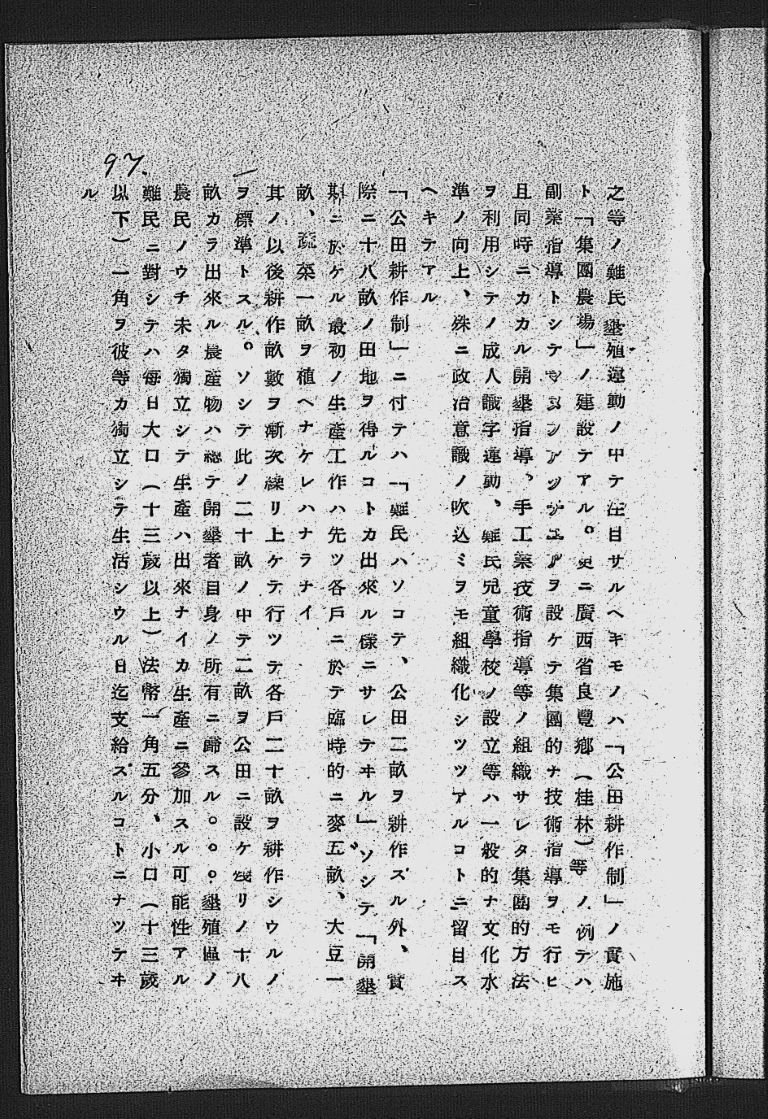 97.
之等ノ難民墾殖運動ノ中テ注目サルヘキモノハ「公田耕作制」ノ實施
ト「集團農場」ノ建設テアル。更ニ廣西省良豐鄕(桂林)等ノ例テハ
副業指導トシテマヌフアツチユアヲ設ケテ集團的ナ技術指導ヲモ行ヒ
且同時ニカカル開墾指導、手工業技術指導等ノ組織サレタ集團的方法
ヲ利用シテノ成人識字運動、難民兒童學校ノ設立等ハ一般的ナ文化水
準ノ向上、殊ニ政治意識ノ吹込ミヲモ組織化シツツアルコトニ留目ス
ヘキテアル
「公田耕作制」ニ付テハ「難民ハソコテ、公田二畝ヲ耕作スル外、實
際ニ十八畝ノ田地ヲ得ルコトカ出來ル樣ニサレテヰル」ソシテ「開墾
期ニ於ケル最初ノ生產工作ハ先ツ各戶ニ於テ臨時的ニ麥五畝、大豆一
畝、蔬菜一畝ヲ植ヘナケレハナラナイ
其ノ以後耕作畝數ヲ漸次繰リ上ケテ行ツテ各戶二十畝ヲ耕作シウルノ
ヲ標準トスル。ソシテ此ノ二十畝ノ中テ二畝ヲ公田ニ設ケ殘リノ十八
畝カラ出來ル農產物ハ總テ開墾者自身ノ所有ニ歸スル。。。墾殖區ノ
農民ノウチ未タ獨立シテ生產ハ出來ナイカ生產ニ參加スル可能性アル
難民ニ對シテハ每日大口(十三歲以上)法幣一角五分、小口(十三歲
以下)一角ヲ彼等カ獨立シテ生活シウル日迄支給スルコトニナツテヰ
ル